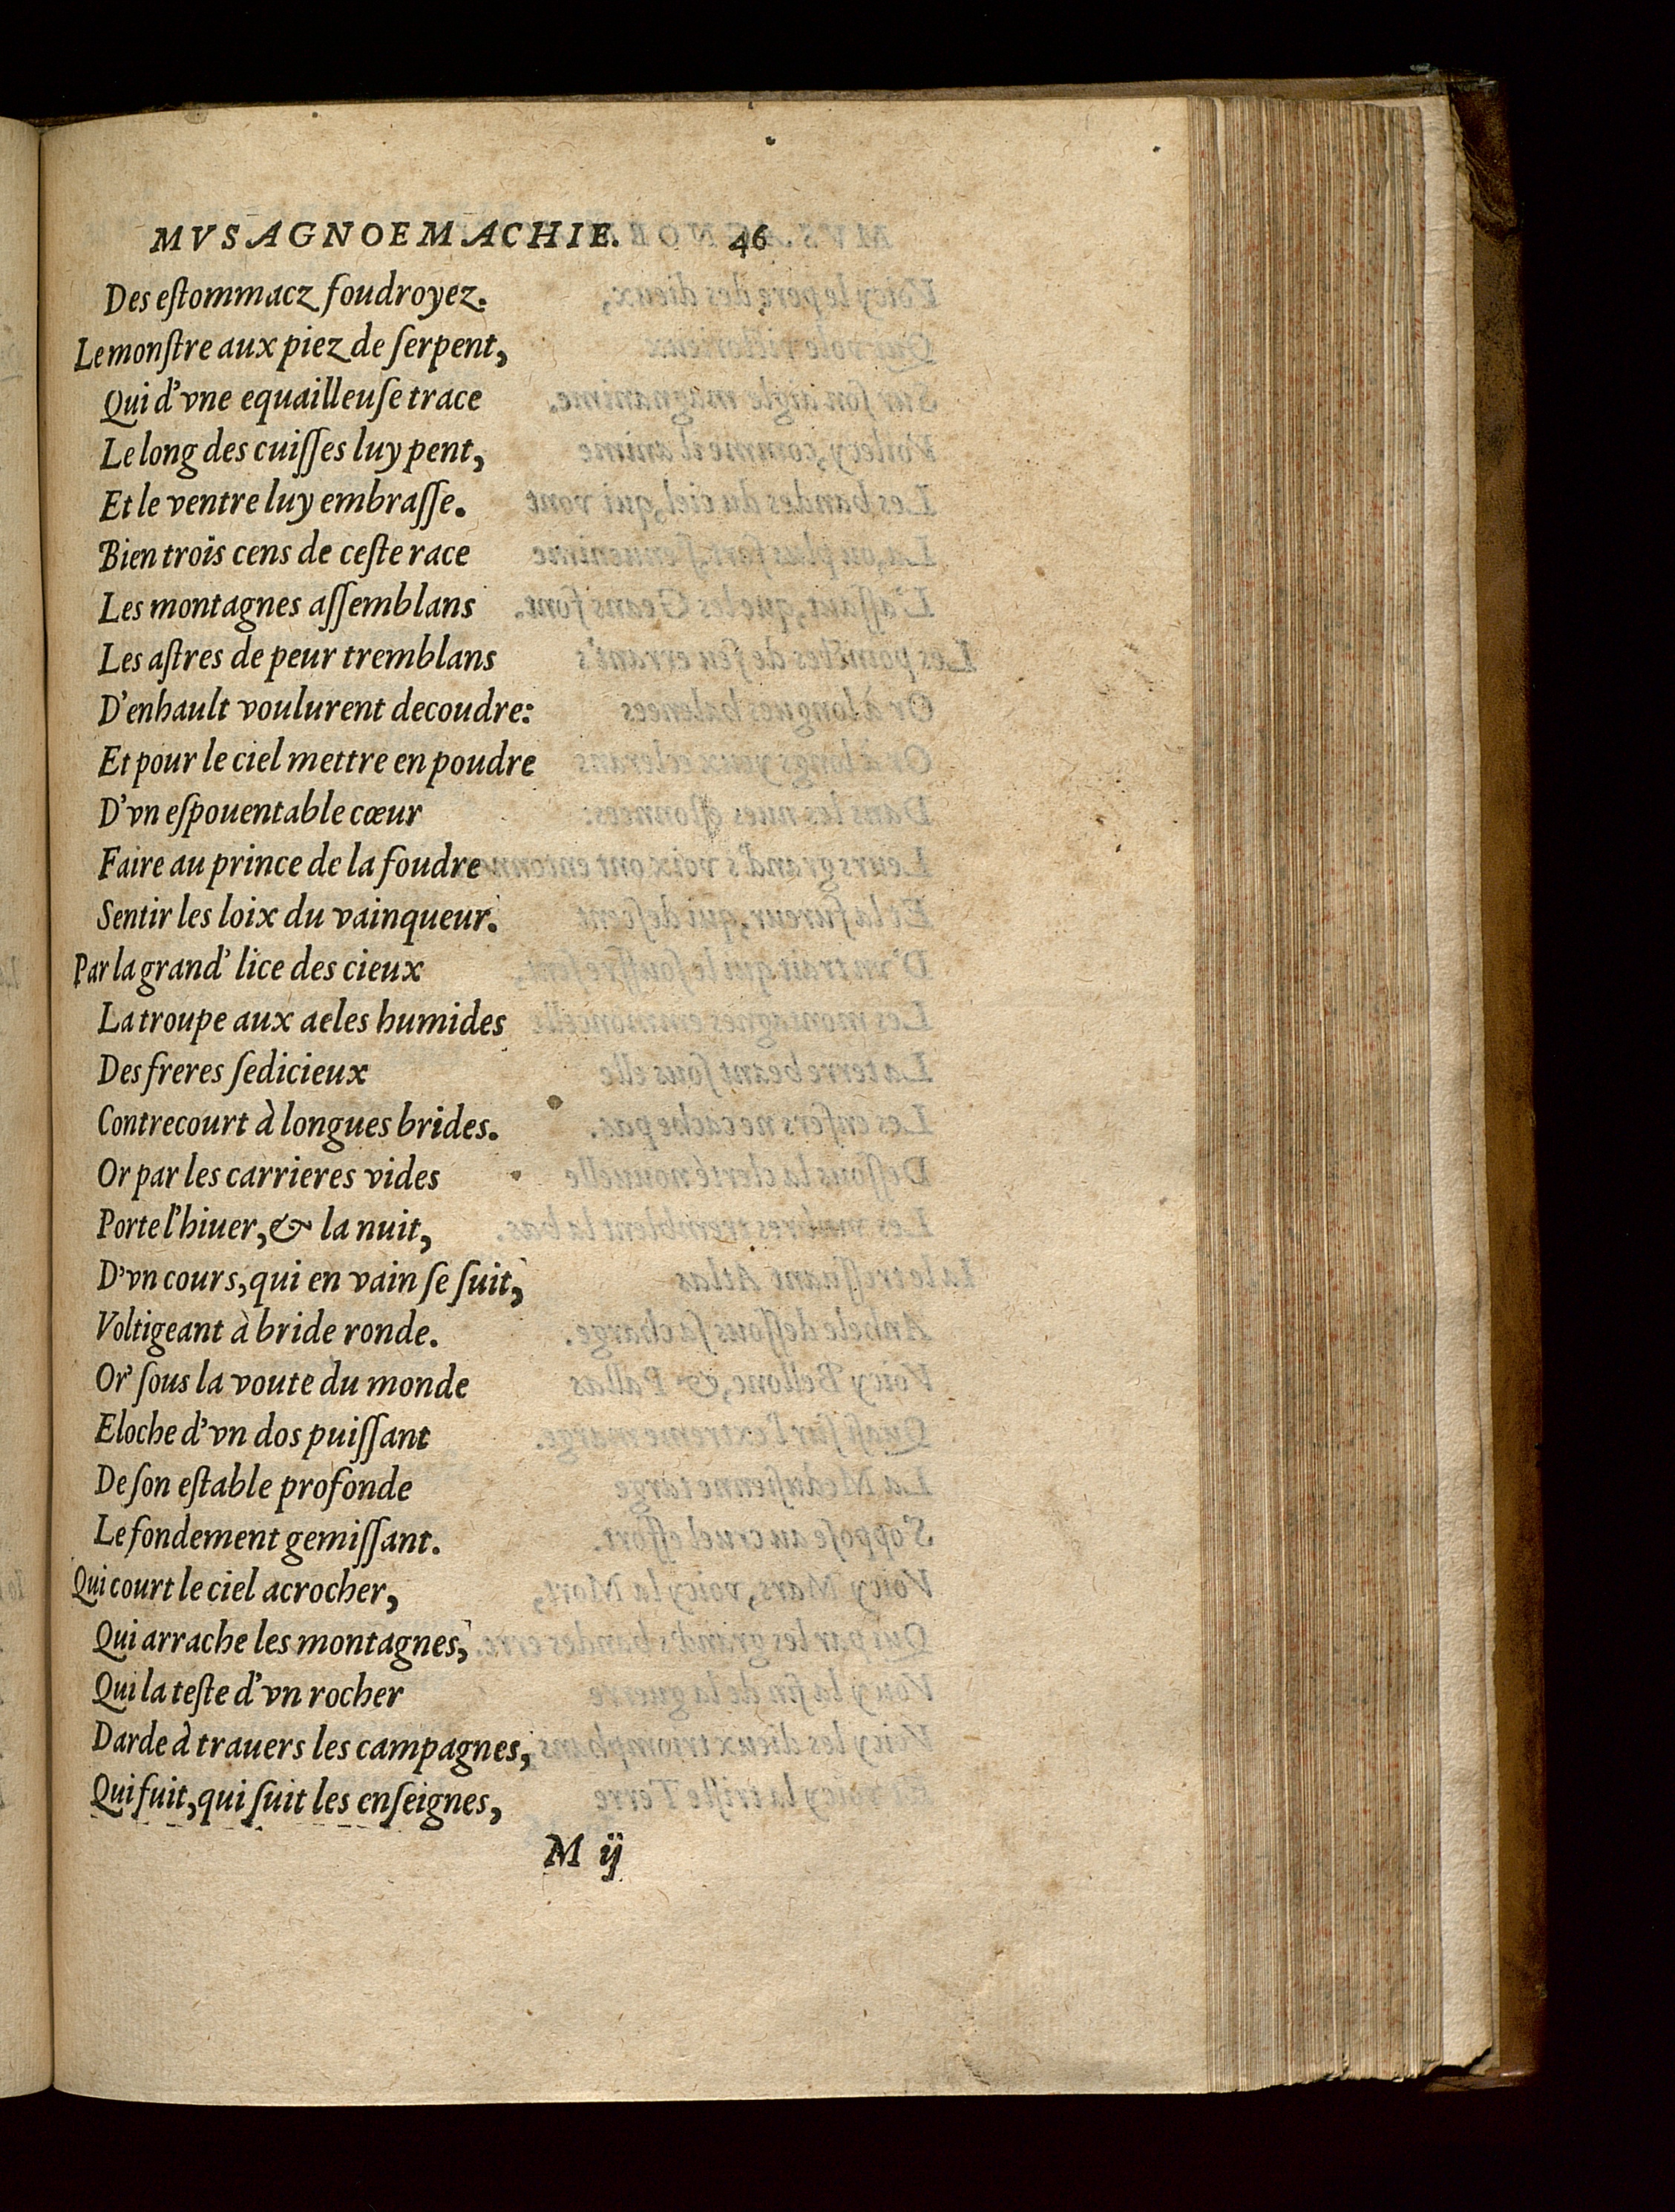 MVSAGNOEMACHIE. 46
Des eſtommacz foudroyez.
Le monſtre aux piez de ſerpent,
Qui d'vne equailleuſe trace
Le long des cuiſſes luy pent,
Et le ventre luy embraſſe.
Bien trois cens de ceſte race
Les montagnes aſſemblans
Les aſtres de peur tremblans
D'enhault voulurent decoudre:
Et pour le ciel mettre en poudre
D'vn eſpouentable cœur
Faire au prince de la foudre
Sentir les loix du vainqueur.
Par la grand' lice des cieux
La troupe aux aeles humides
Des freres ſedicieux
Contrecourt à longues brides.
Or par les carrieres vides
Porte l'hiuer, & la nuit,
D'vn cours, qui en vain ſe ſuit,
Voltigeant à bride ronde.
Or' ſous la voute du monde
Eloche d'vn dos puiſſant
De ſon eſtable profonde
Le fondement gemiſſant.
Qui court le ciel acrocher,
Qui arrache les montagnes,
Qui la teſte d'vn rocher
Darde à trauers les campagnes,
Qui fuit, qui ſuit les enſeignes,
M ij